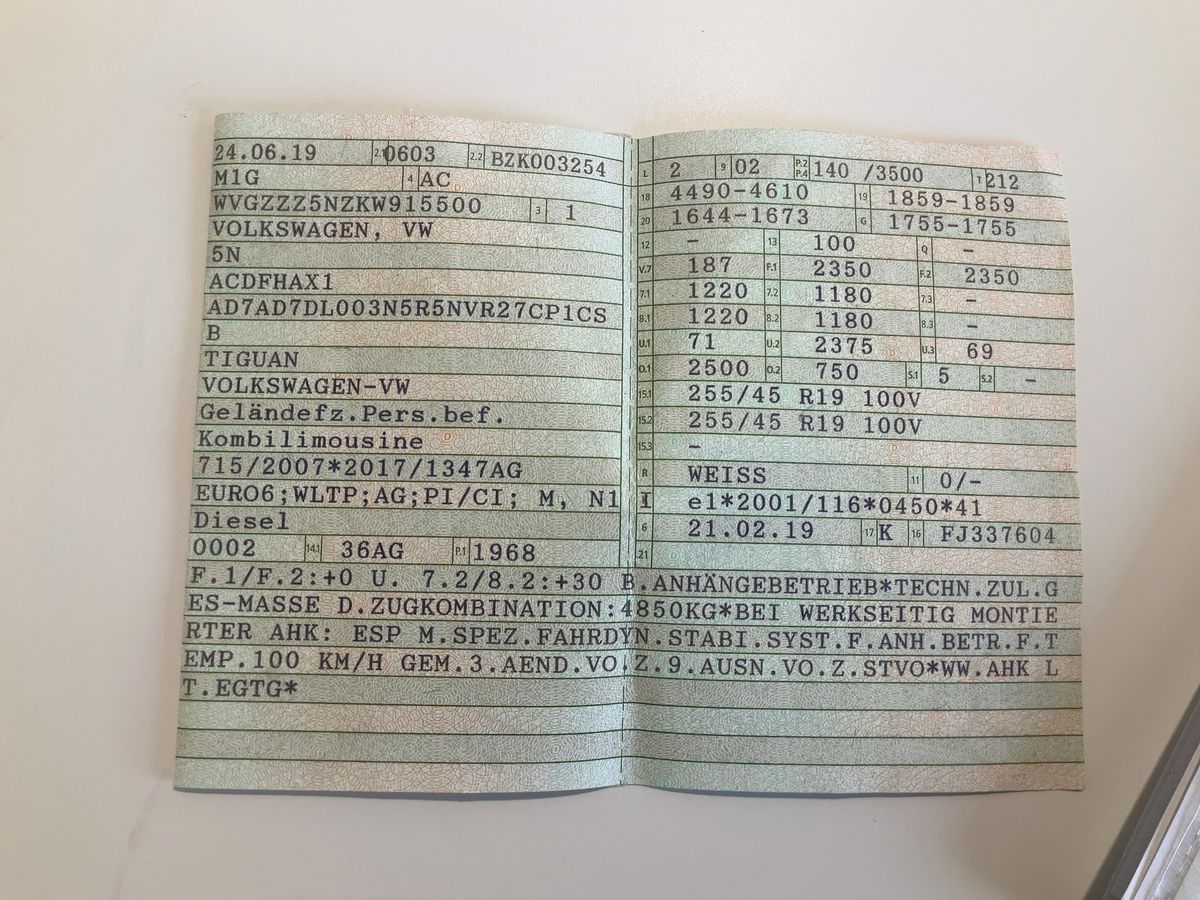 24.06.19 2.1 0603 2.2 BZK003254
M1G 4 AC
WVGZZZ5NZKW915500 3 1
VOLKSWAGEN, VW
5N
ACDFHAX1
AD7AD7DL003N5R5NVR27CP1CS
B
TIGUAN
VOLKSWAGEN-VW
Geländefz.Pers.bef.
Kombilimousine
715/2007*2017/1347AG
EURO6;WLTP;AG;PI/CI; M, N1 I
Diesel
0002 14.1 36AG P.1 1968
L 2 9 02 P.2 P.4 140 /3500 T 212
18 4490-4610 19 1859-1859
20 1644-1673 G 1755-1755
12 - 13 100 Q -
V.7 187 F.1 2350 F.2 2350
7.1 1220 7.2 1180 7.3 -
8.1 1220 8.2 1180 8.3 -
U.1 71 U.2 2375 U.3 69
O.1 2500 O.2 750 S.1 5 S.2 -
15.1 255/45 R19 100V
15.2 255/45 R19 100V
15.3 -
R WEISS 11 0/-
e1*2001/116*0450*41
6 21.02.19 17 K 16 FJ337604
21
F.1/F.2:+0 U. 7.2/8.2:+30 B.ANHÄNGEBETRIEB*TECHN.ZUL.G
ES-MASSE D.ZUGKOMBINATION:4850KG*BEI WERKSEITIG MONTIE
RTER AHK: ESP M.SPEZ.FAHRDYN.STABI.SYST.F.ANH.BETR.F.T
EMP.100 KM/H GEM.3.AEND.VO.Z.9.AUSN.VO.Z.STVO*WW.AHK L
T.EGTG*